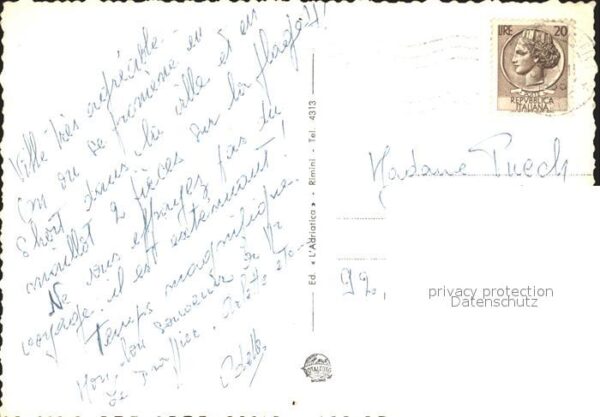 Ville très agréable
on on se promène en
short dans la ville et en
maillot 2 pièces sur la plage !!
Ne vous effrayez pas du
voyage. il est exténuant !
Temps magnifique.
Mon bon souvenir à Mr
LIRE 20
REPVBBLICA
ITALIANA
Madame Puech
99,
Ed. « L'Adriatica » - Rimini - Tel. 4313
privacy protection
Datenschutz